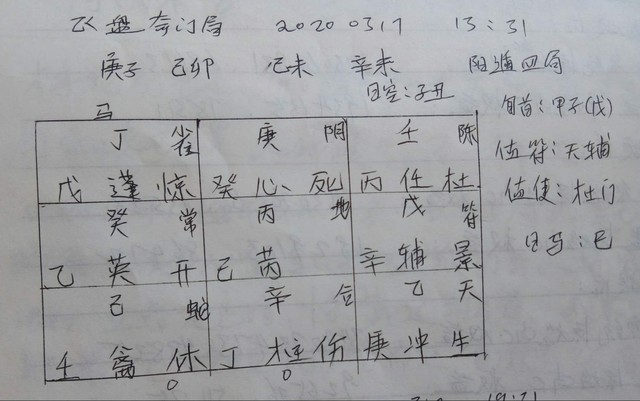 飞盘奇门局 20200317 13:31
庚子 己卯 己未 辛未 阳遁四局
日空:子丑
旬首:甲子(戊)
值符:天辅
值使:杜门
日马:巳
马
丁 雀 庚 阴 壬 陈
戊 蓬 惊 癸 心 死 丙 任 杜
癸 常 丙 地 戊 符
乙 英 开 己 芮 辛 辅 景
己 蛇 辛 合 乙 天
壬 禽 休 丁 柱 伤 庚 冲 生
○ ○